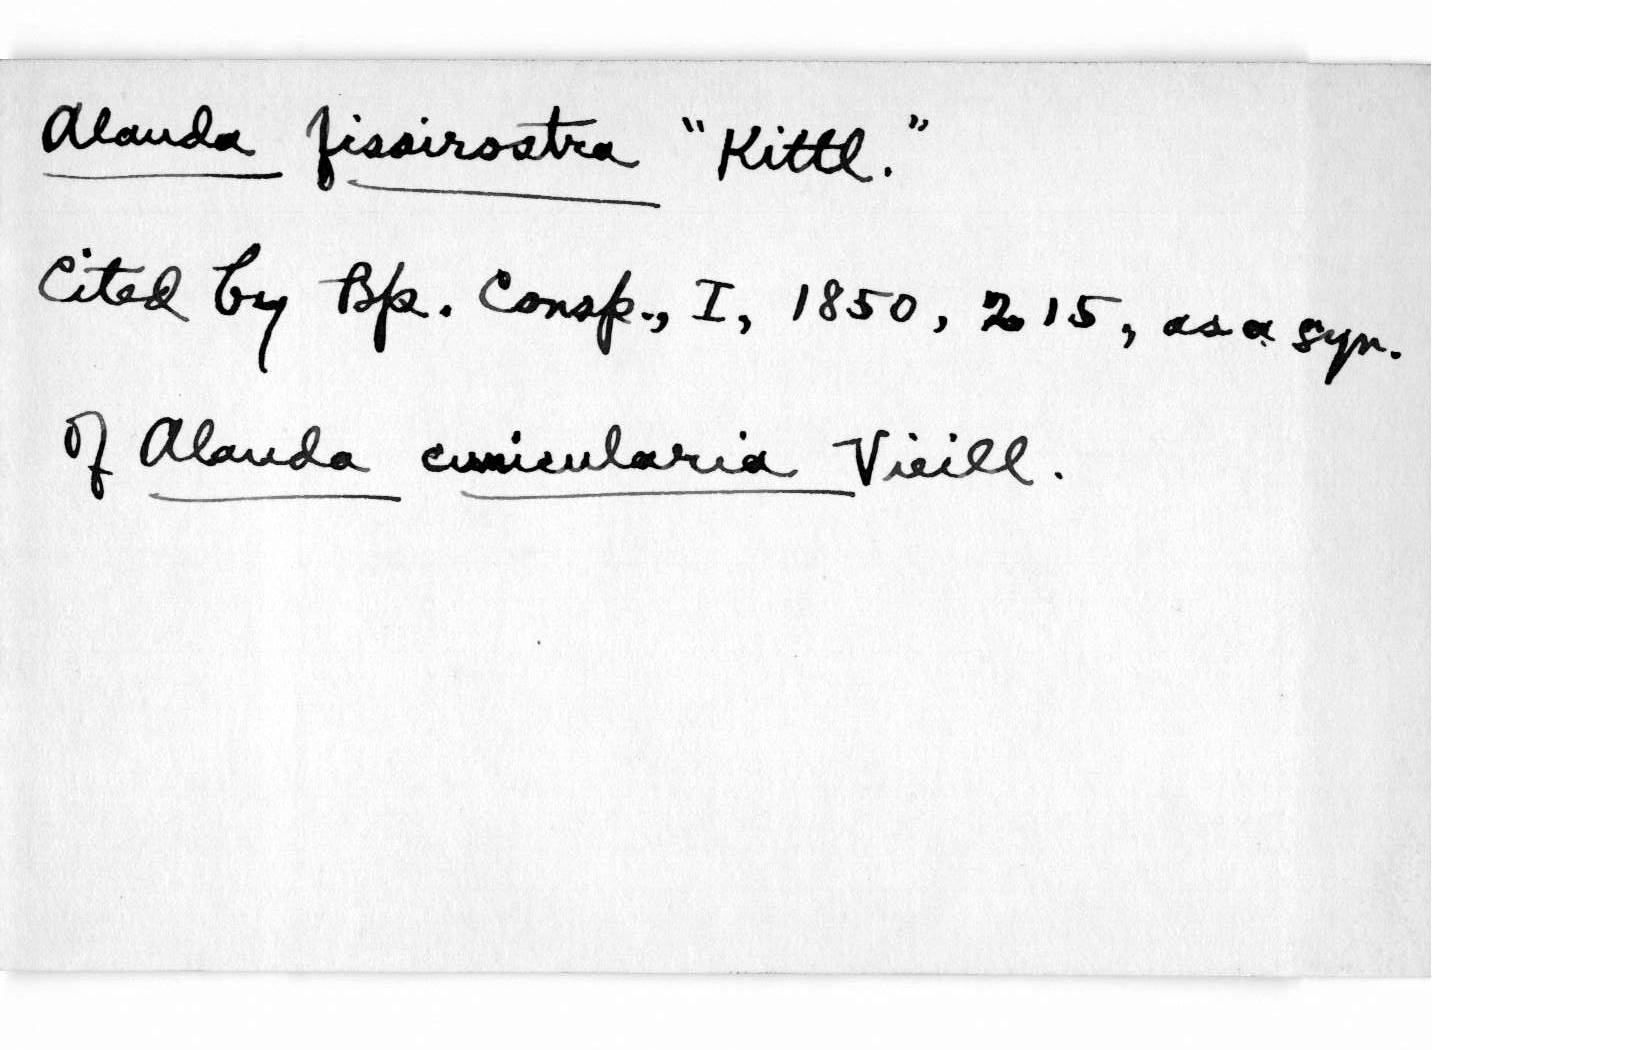 Alauda fissirostra "Kittl."
Cited by Bp. Consp., I, 1850, 215, as a syn.
of Alauda cunicularia Vieill.